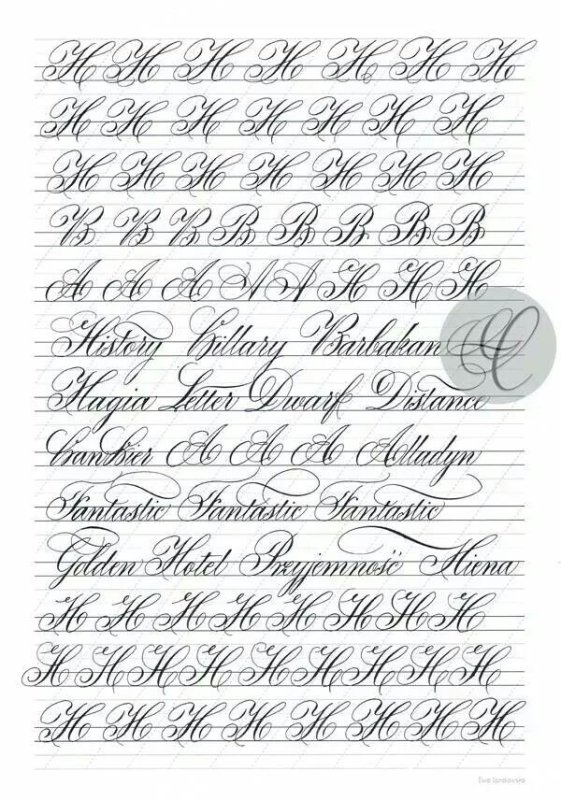 H H H H H H H
H H H H H H H
H H H H H H H
B B B B B B B B
A A A A A H H H
History Hillary Barbakan
Hagia Letter Dwarf Distance
A A A Alladyn
Fantastic Fantastic Fantastic
Golden Hotel Przyjemność Hiena
H H H H H H H H
H H H H H H H H H
H H H H H H H H